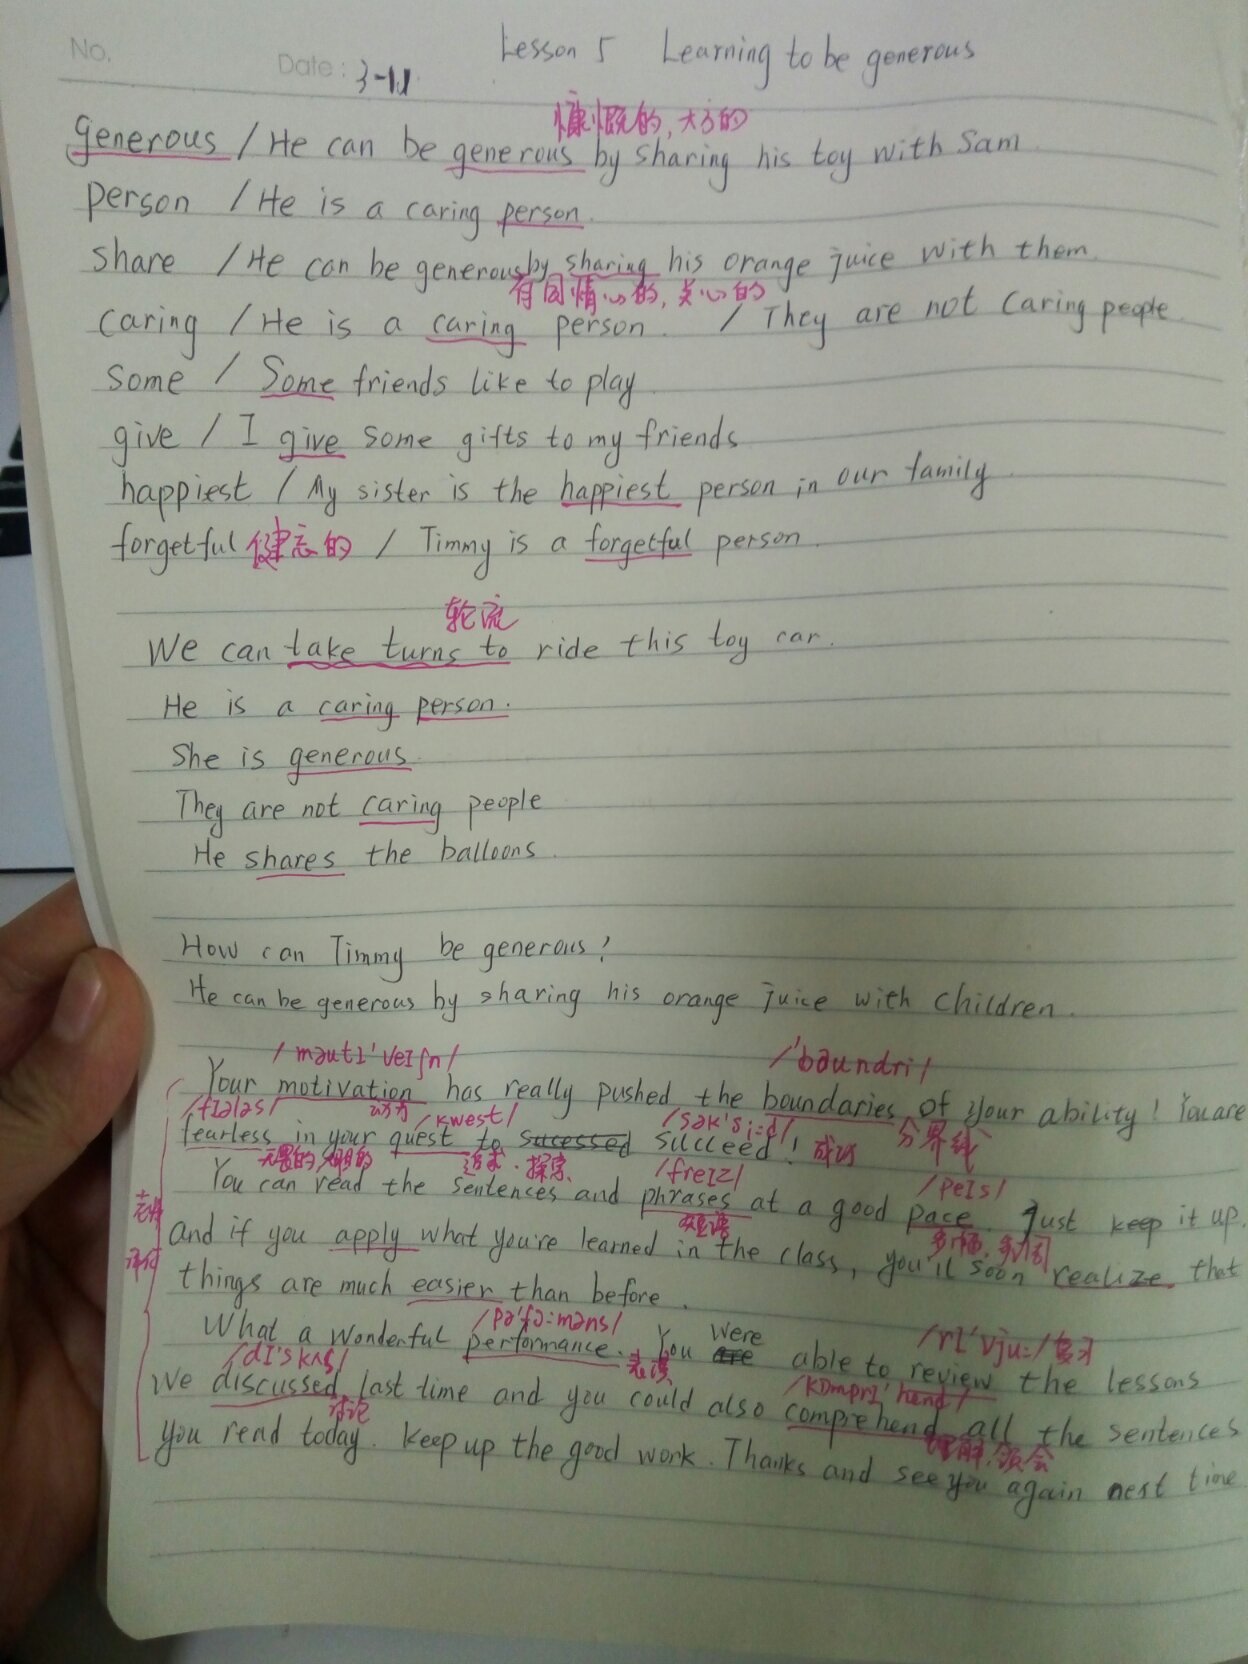 Lesson 5 Learning to be generous
No.
Date: 3-11
慷慨的,大方的
generous / He can be generous by sharing his toy with Sam
person / He is a caring person.
share / He can be generous by sharing his orange juice with them.
有同情心的,关心的
caring / He is a caring person. / They are not caring people.
some / Some friends like to play
give / I give some gifts to my friends
happiest / My sister is the happiest person in our family
forgetful 健忘的 / Timmy is a forgetful person.
轮流
We can take turns to ride this toy car.
He is a caring person.
She is generous.
They are not caring people
He shares the balloons.
How can Timmy be generous?
He can be generous by sharing his orange juice with children.
/məutɪ'veɪʃn/ /'baundri/
Your motivation has really pushed the boundaries of your ability! You are
/fɪələs/ 动力 /kwest/ /sək'si:d/ 分界线
fearless in your quest to sucessed succeed! 成功
无畏的, 追求.探索. /freɪz/ /peɪs/
You can read the sentences and phrases at a good pace. Just keep it up.
老师 短语
And if you apply what you're learned in the class, you'll soon realize that
评价
things are much easier than before.
/pə'fɔ:məns/
What a wonderful performance. You are were able to review the lessons
/dɪ'skʌs/ 表演 /rɪ'vju:/复习
We discussed last time and you could also comprehend all the sentences
讨论 /kɒmprɪ'hend/ 理解.领会
you read today. Keep up the good work. Thanks and see you again nest time